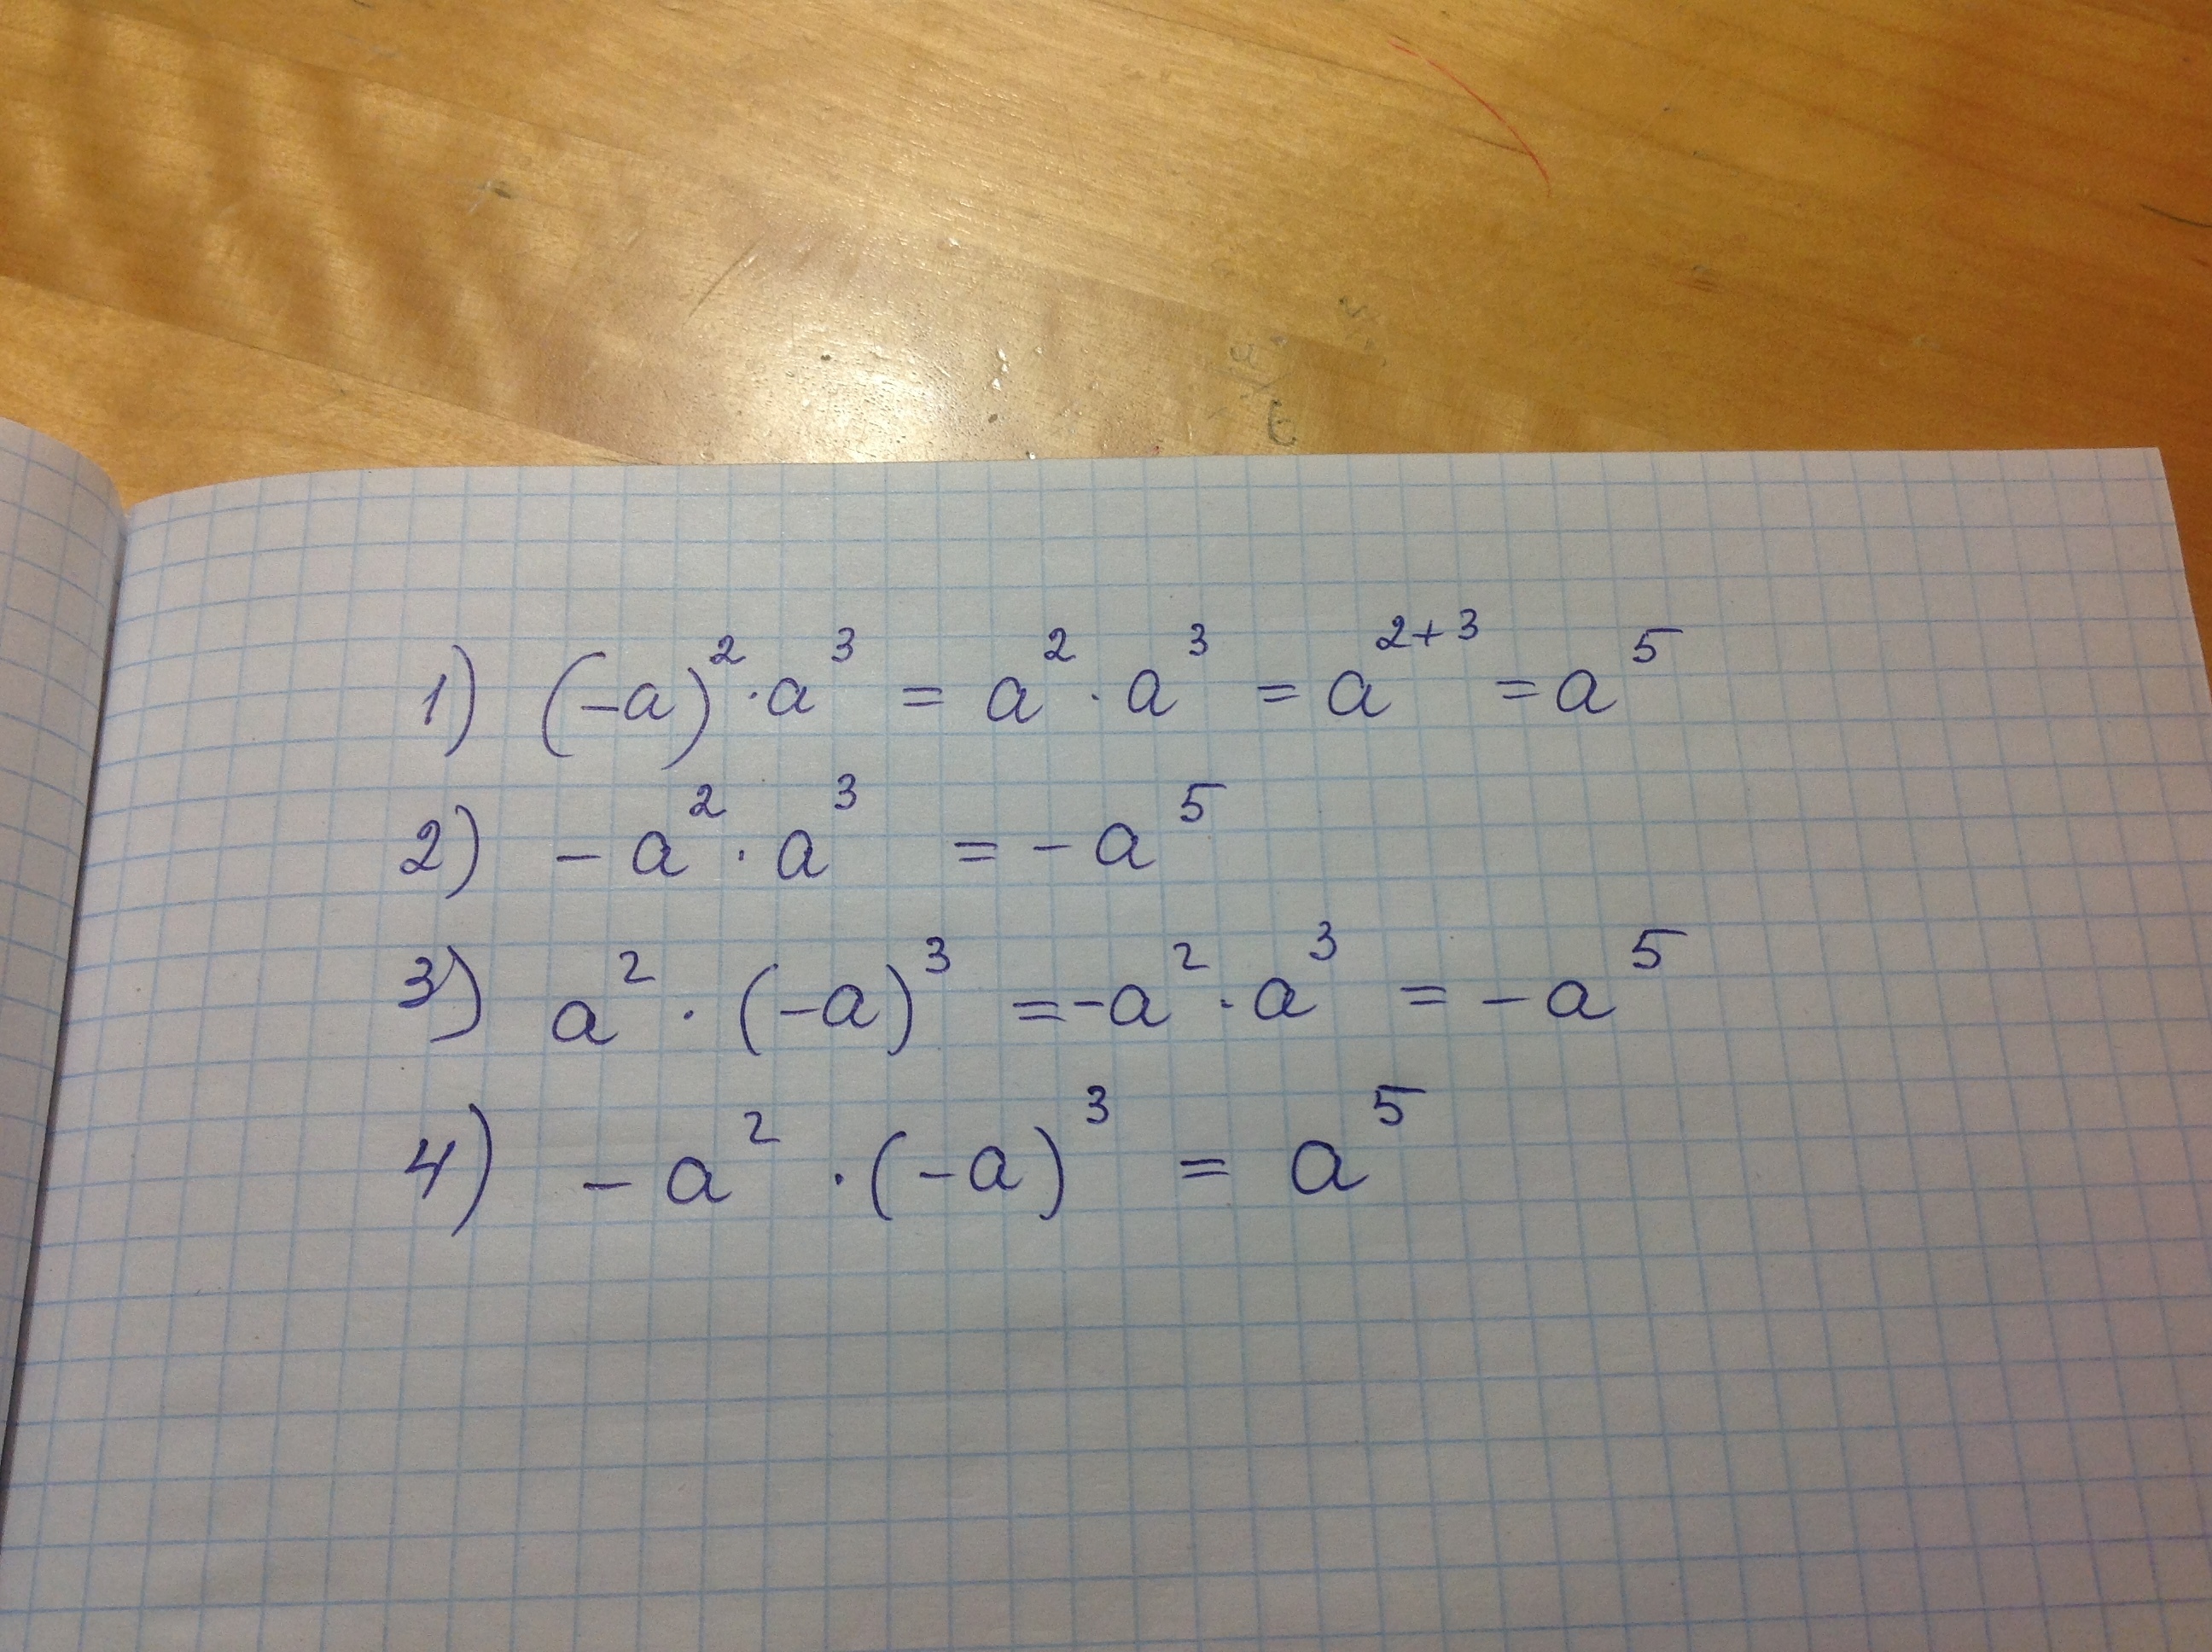 1) (-a)² · a³ = a² · a³ = a²⁺³ = a⁵
2) - a² · a³ = - a⁵
3) a² · (-a)³ = -a² · a³ = - a⁵
4) - a² · (-a)³ = a⁵